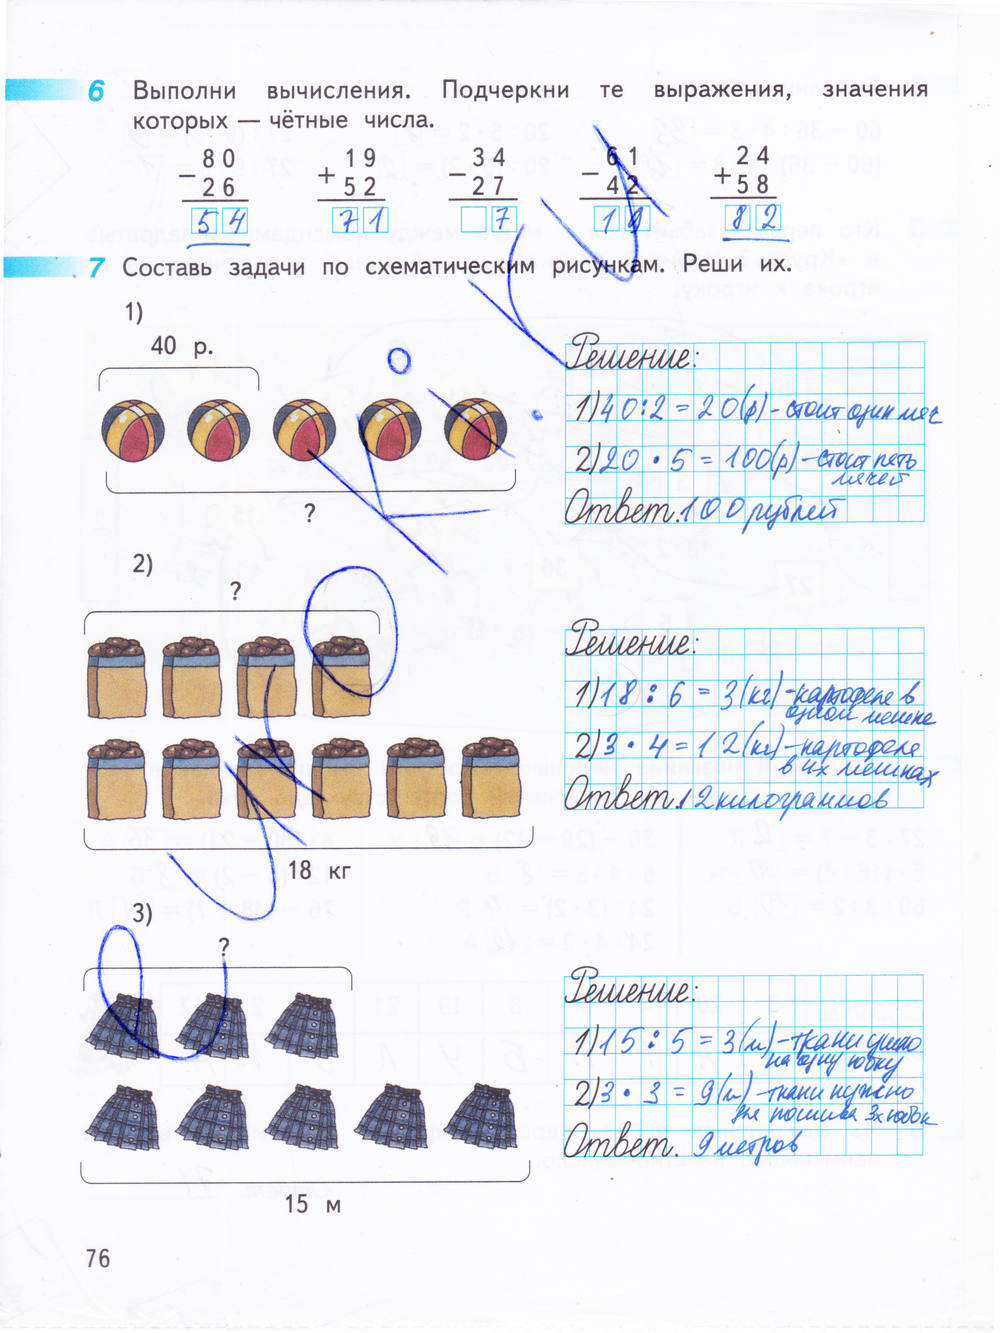 6 Выполни вычисления. Подчеркни те выражения, значения
которых — чётные числа.
80 19 34 61 24
- 26 + 52 - 27 - 42 + 58
54 71 7 19 82
7 Составь задачи по схематическим рисункам. Реши их.
1)
40 р.
?
Решение:
1) 40 : 2 = 20 (р) - стоит один мяч
2) 20 · 5 = 100 (р) - стоят пять
мячей
Ответ. 100 рублей
2)
?
18 кг
Решение:
1) 18 : 6 = 3 (кг) - картофеля в
одном мешке
2) 3 · 4 = 12 (кг) - картофеля
в 4х мешках
Ответ. 12 килограммов
3)
?
15 м
Решение:
1) 15 : 5 = 3 (м) - ткани ушло
на одну юбку
2) 3 · 3 = 9 (м) - ткани нужно
для пошива 3х юбок
Ответ. 9 метров
76